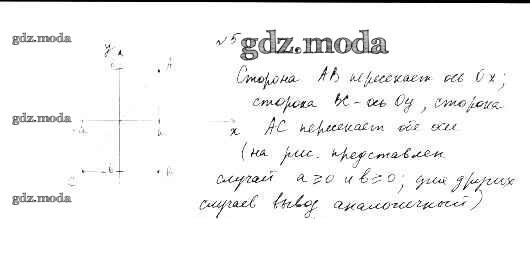 gdz.moda
№5
gdz.moda
y
a
A
Сторона AB пересекает ось Ox;
сторона BC - ось Oy, сторона
gdz.moda
-a
x AC пересекает обе оси
(на рис. представлен
случай a ≥ 0 и b ≥ 0; для других
C
-b
B
случаев вывод аналогичный)
gdz.moda